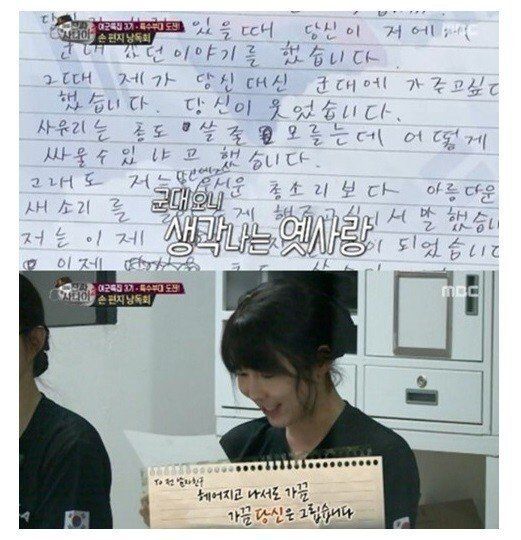 진짜 사나이
여군특집 3기 - 특수부대 도전!
손 편지 낭독회
MBC
있을때 당신이 저에게
군대 갔던 이야기를 했습니다.
그때 제가 당신 대신 군대에 가주고싶다
했습니다. 당신이 웃었습니다.
사유리는 총도 쏠 줄 모르는데 어떻게
싸울수있냐고 했습니다.
그래도 저는 당신에게 총소리보다 아름다운
새소리를 해주고 싶어서 말했습니
저는 이제 이 되었습니다
이제
군대 오니
생각나는 옛사랑
진짜 사나이
여군특집 3기 - 특수부대 도전!
손 편지 낭독회
MBC
To 전 남자친구
헤어지고 나서도 가끔
가끔 당신은 그립습니다